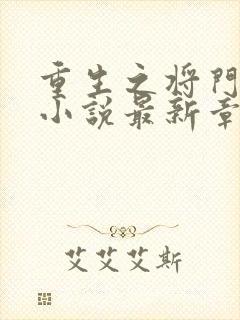 重生之将門
小說最新章
艾艾艾斯